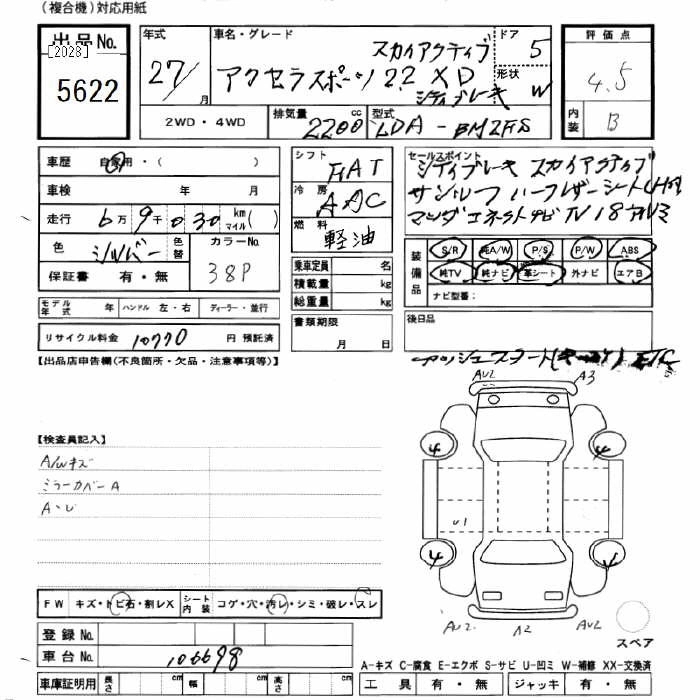 (複合機)対応用紙
出品No.
[2028]
5622
年式
27/
月
車名・グレード
スカイアクティブ
アクセラスポーツ 2.2 XD
シティブレーキ
ドア
5
形状
W
2WD・4WD
排気量
2200
cc
型式
LDA-BM2FS
評価点
4.5
内装
B
車歴
自家用・( )
車検
年 月
走行
6万9千030
km
マイル
( )
色
シルバー
色替
カラーNo.
38P
保証書
有・無
モデル年式
年
ハンドル 左・右
ディーラー・並行
リサイクル料金
10770
円 預託済
シフト
FAT
冷房
AAC
燃料
軽油
乗車定員
名
積載量
kg
総重量
kg
書類期限
月 日
セールスポイント
シティブレーキ スカイアクティブ
サンルーフ ハーフレザーシート
マツダコネクトナビTV 18アルミ
装備品
S/R 純A/W P/S P/W ABS
純TV 純ナビ 革シート 外ナビ エアB
ナビ型番:
後日品
ETC
【出品店申告欄(不良箇所・欠品・注意事項等)】
【検査員記入】
A/Wキズ
ミラーカバーA
A・U
AU2
A3
4
4
U1
4
4
AU2
A2
AU2
スペア
FW
キズ・トビ石・割レX
シート内装
コゲ・穴・汚レ・シミ・破レ・スレ
登録No.
車台No.
106698
車庫証明用
長さ
cm
幅
cm
高さ
cm
A-キズ C-腐食 E-エクボ S-サビ U-凹ミ W-補修 XX-交換済
工具
有・無
ジャッキ
有・無